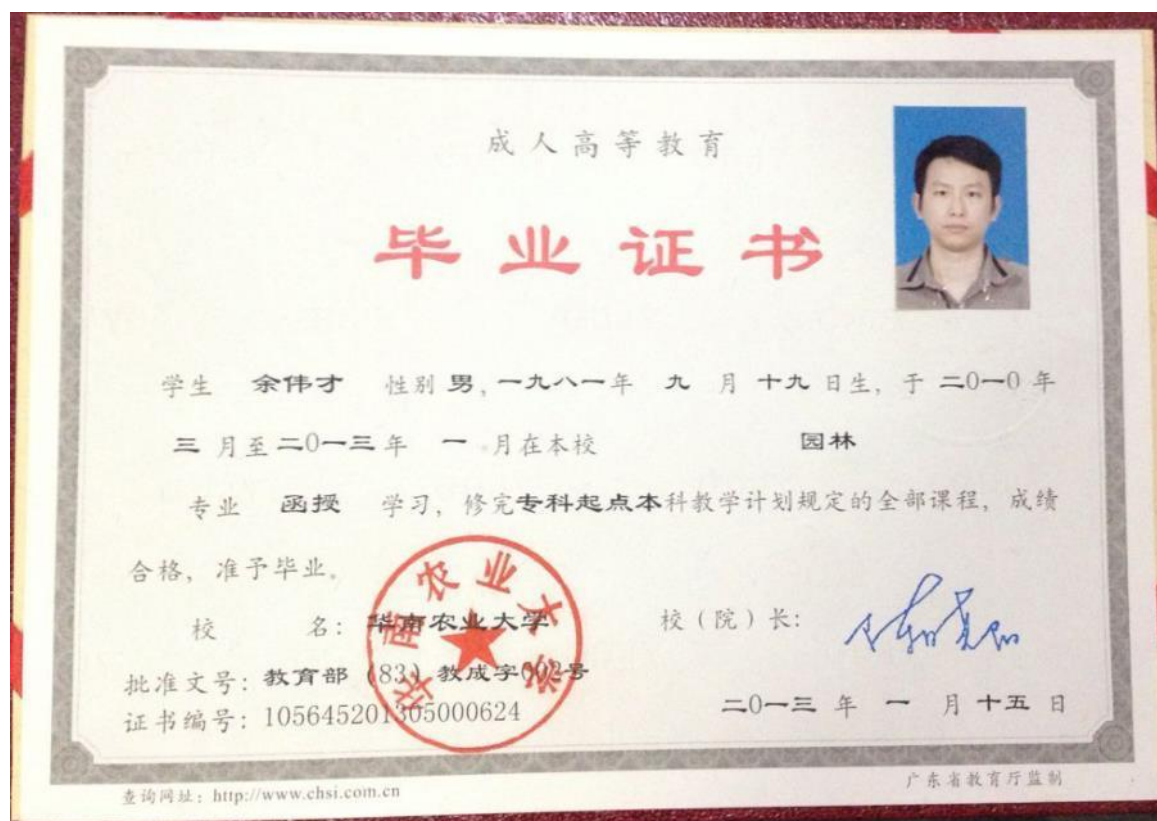 成人高等教育
毕业证书
学生 余伟才 性别 男，一九八一年 九 月 十九 日生，于 二0一0 年
三 月至 二0一三 年 一 月在本校 园林
专业 函授 学习，修完专科起点本科教学计划规定的全部课程，成绩
合格，准予毕业。
华南农业大学
校 名：华南农业大学 校（院）长：
批准文号：教育部（83）教成字002号
证书编号：105645201305000624
二0一三 年 一 月 十五 日
查询网址：http://www.chsi.com.cn 广东省教育厅监制